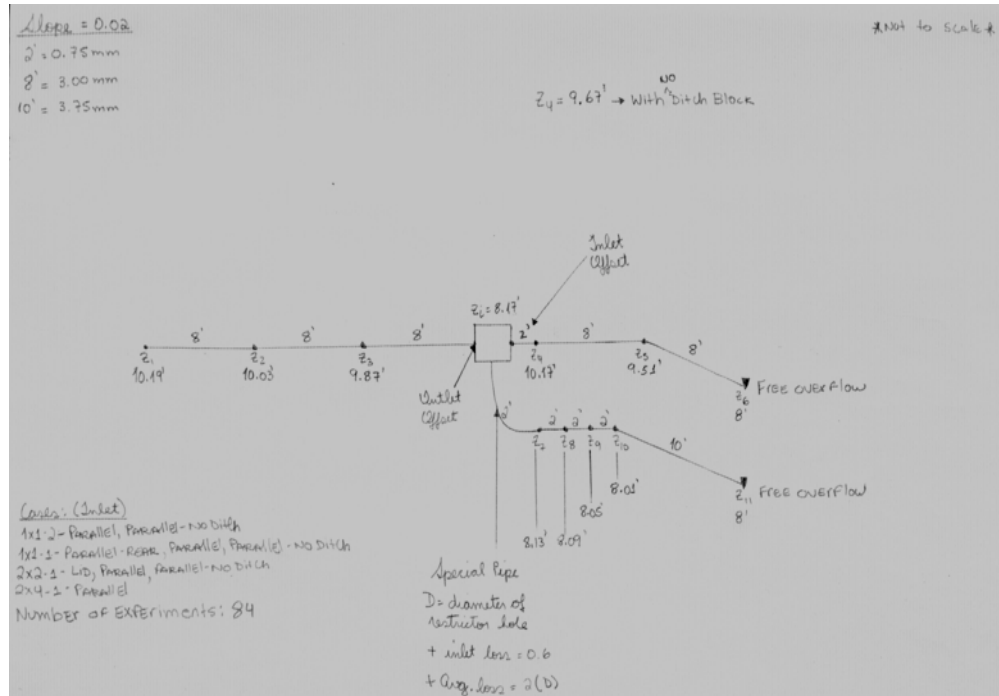 Slope = 0.02
2' = 0.75 mm
8' = 3.00 mm
10' = 3.75 mm
*Not to Scale*
NO
Z4 = 9.67' → With ^ Ditch Block
Inlet
Offset
Zi = 8.17'
8'
8'
8'
2'
8'
8'
Z1
10.19'
Z2
10.03'
Z3
9.87'
Z4
10.17'
Z5
9.51'
Z6
8'
FREE OVERFLOW
Outlet
Offset
2'
2'
2'
2'
10'
Z7
Z8
Z9
Z10
8.13'
8.09'
8.05'
8.01'
Z11
8'
FREE OVERFLOW
Cases: (Inlet)
1x1-2 - PARALLEL, PARALLEL - NO Ditch
1x1-1 - PARALLEL - REAR, PARALLEL, PARALLEL - NO DITCH
2x2-1 - LID, PARALLEL, PARALLEL - NO DITCH
2x4-1 - PARALLEL
NUMBER OF EXPERIMENTS: 84
Special Pipe
D = diameter of
restrictor hole
+ inlet loss = 0.6
+ Avg. loss = 2(D)